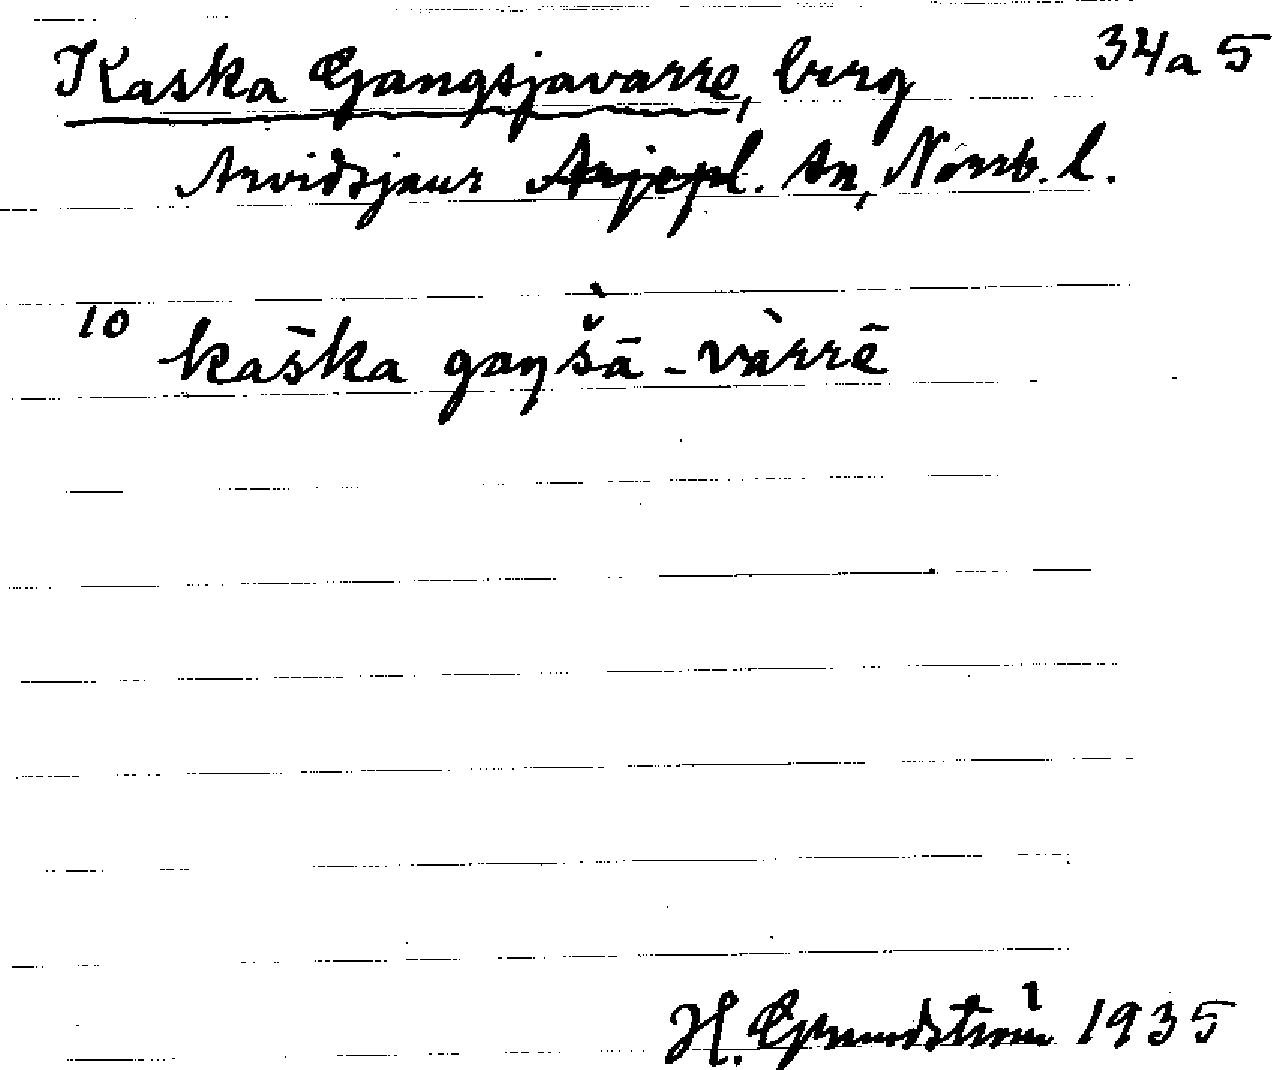 Kaska Gangsjavarre, berg 34a5
Arvidsjaur Arjepl. sn, Norrb. l.
10 kaška gaŋšā̀ - vàrrē
H. Grundström 1935